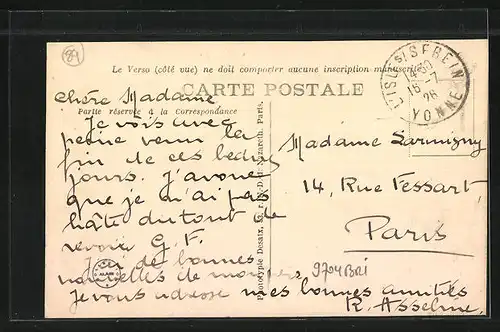 89
Le Verso (côté vue) ne doit comporter aucune inscription manuscrite
CARTE POSTALE
Partie réservée à la Correspondance
L'ISLE S/ SEREIN
16-7
26
YONNE
chère Madame
Je vois avec
peine venir la
fin de ces beaux
jours. J'avoue
que je n'ai pas
hâte du tout de
revoir G. F.
J'ai de bonnes
nouvelles de mon père
je vous adresse mes bonnes amitiés
R. Asseline
Madame
14, Rue Fessart
Paris
Phototypie Desaix, Paris.